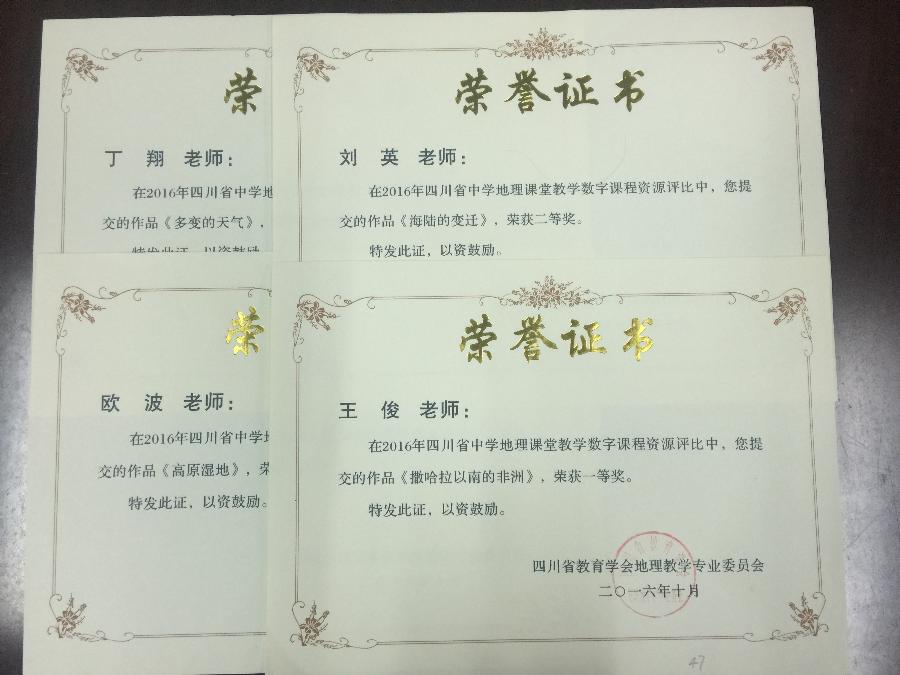 荣
丁 翔 老师：
在2016年四川省中学地
交的作品《多变的天气》，
特发此证，以资鼓励
荣誉证书
刘 英 老师：
在2016年四川省中学地理课堂教学数字课程资源评比中，您提
交的作品《海陆的变迁》，荣获二等奖。
特发此证，以资鼓励。
荣
欧 波 老师：
在2016年四川省中学地
交的作品《高原湿地》，荣
特发此证，以资鼓励。
荣誉证书
王 俊 老师：
在2016年四川省中学地理课堂教学数字课程资源评比中，您提
交的作品《撒哈拉以南的非洲》，荣获一等奖。
特发此证，以资鼓励。
四川省教育学会地理教学专业委员会
二〇一六年十月
47